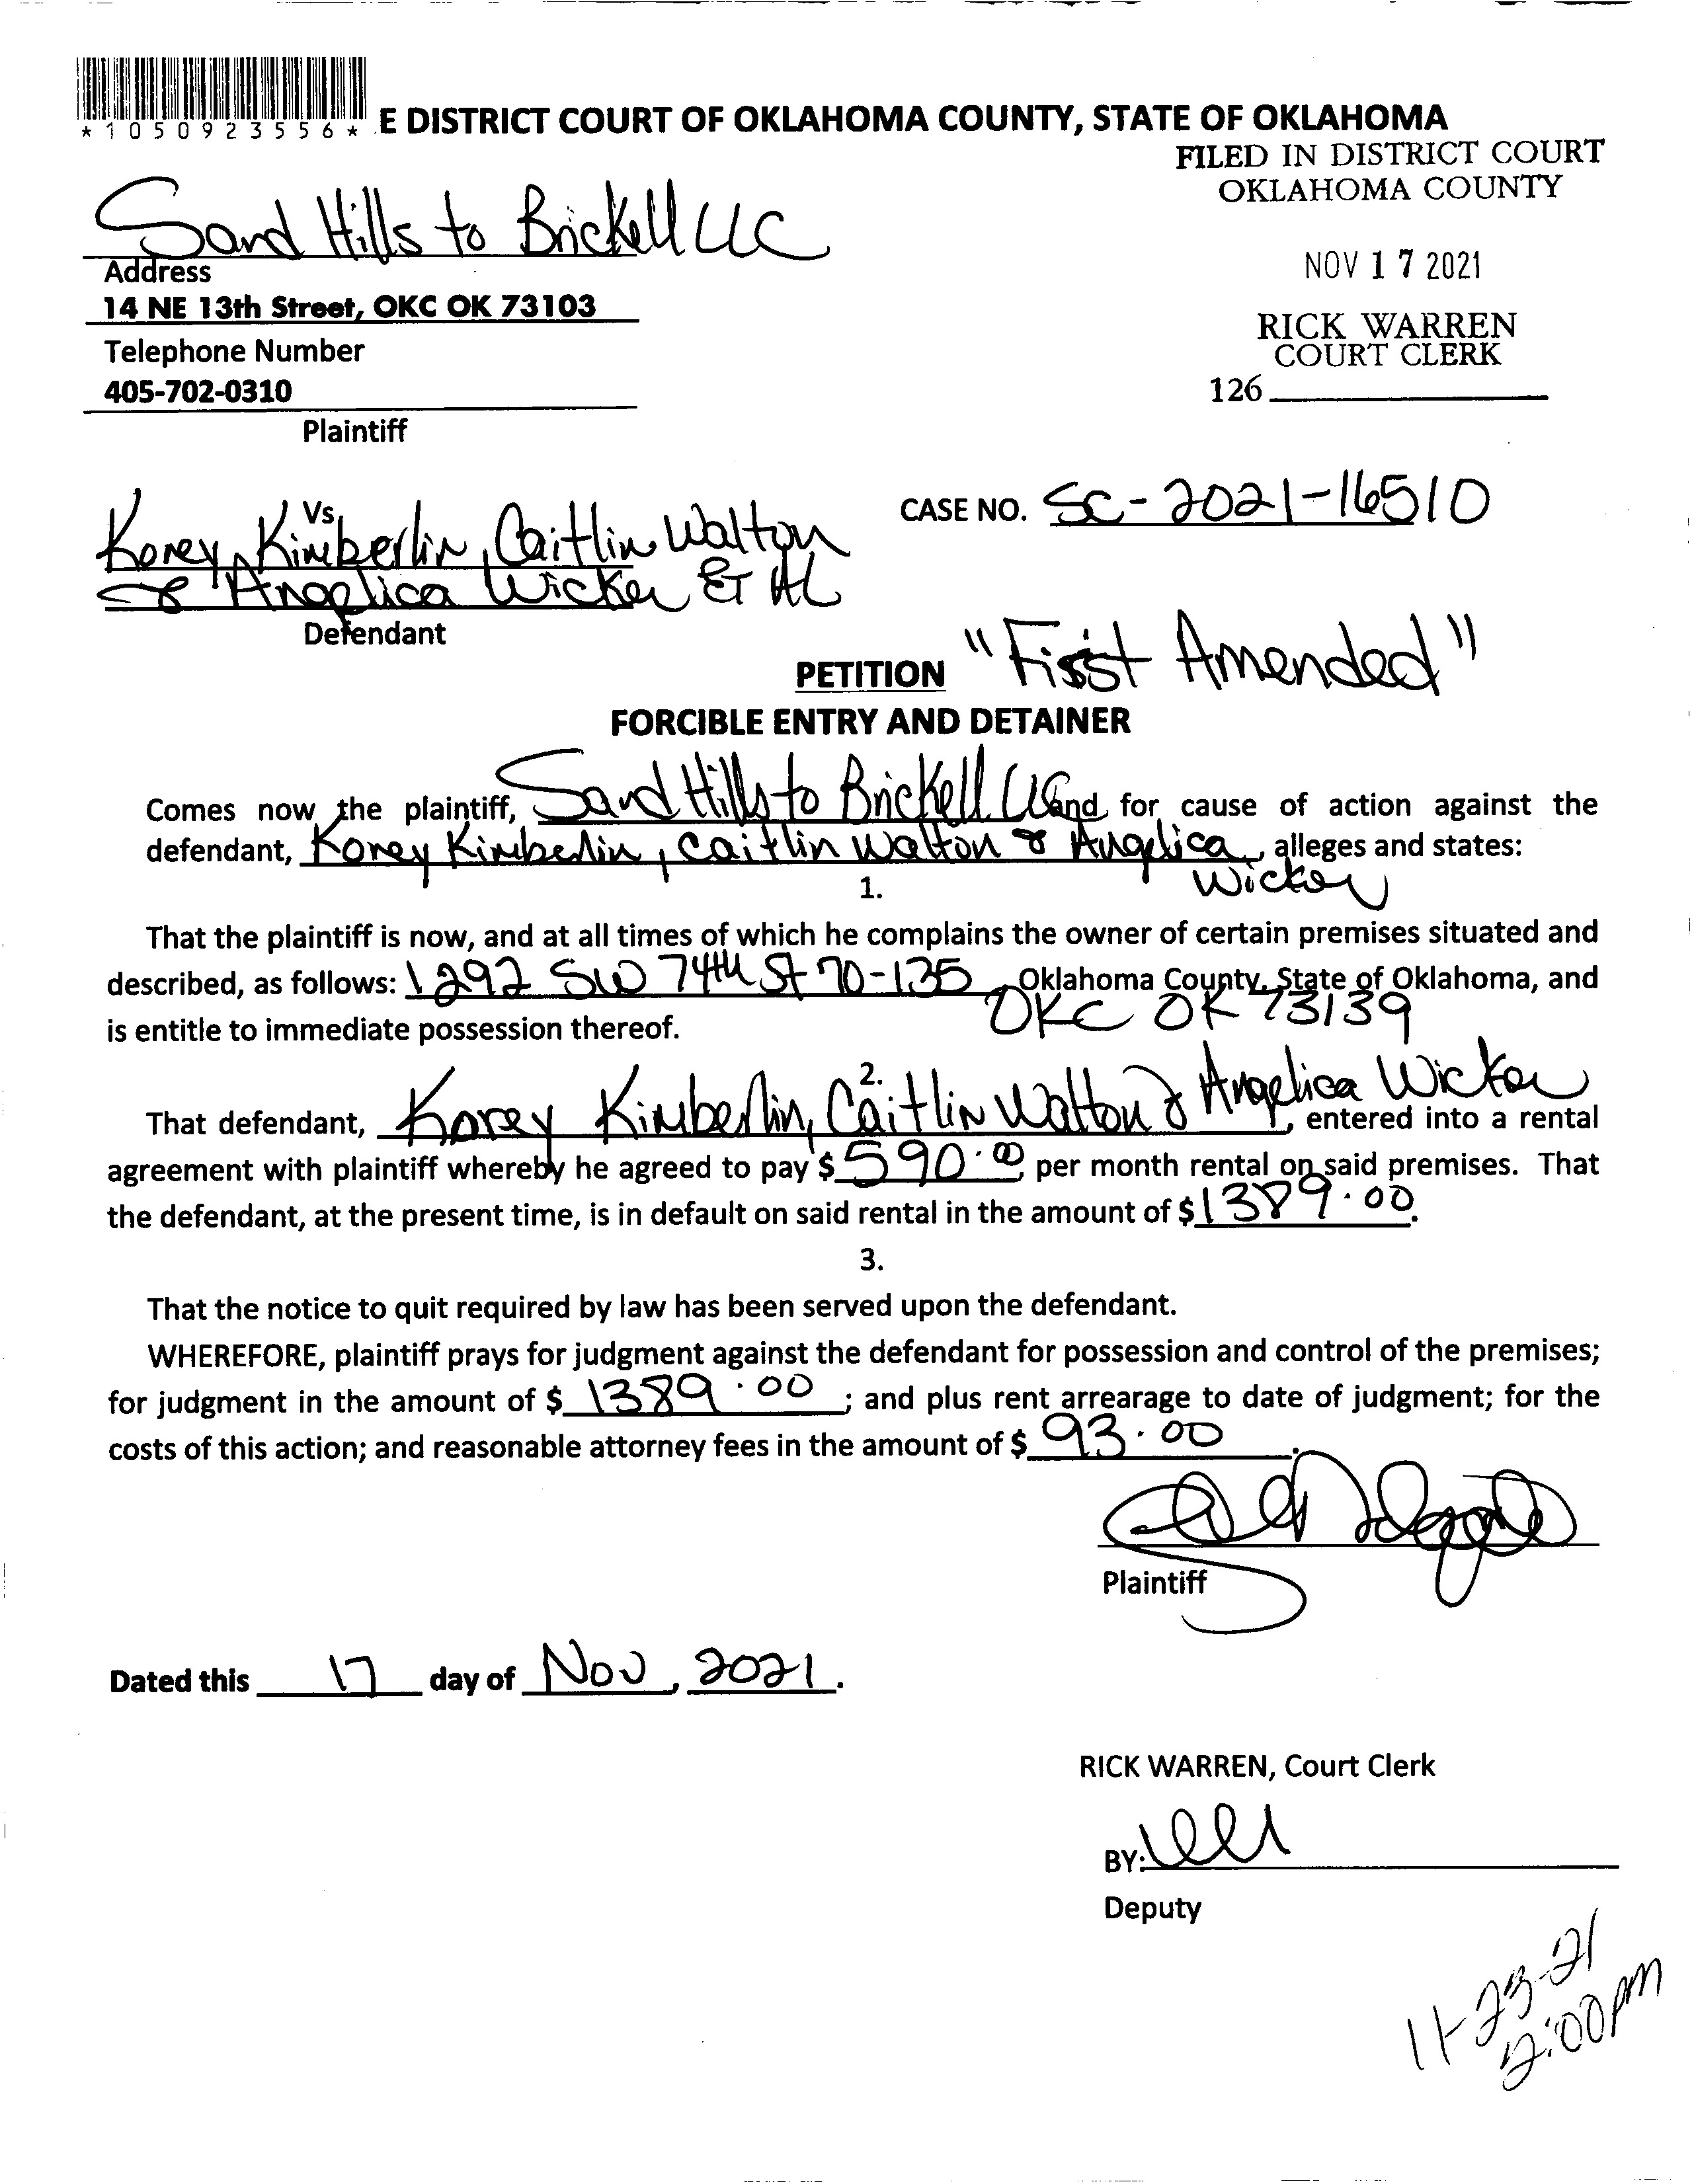 *1050923556* E DISTRICT COURT OF OKLAHOMA COUNTY, STATE OF OKLAHOMA
FILED IN DISTRICT COURT
OKLAHOMA COUNTY
NOV 17 2021
RICK WARREN
COURT CLERK
126
Sand Hills to Brickell LLC
Address
14 NE 13th Street, OKC OK 73103
Telephone Number
405-702-0310
Plaintiff
Vs.
CASE NO. SC-2021-16510
Korey Kimberlin, Caitlin Walton
& Angelica Wicker ET AL
Defendant
PETITION "First Amended"
FORCIBLE ENTRY AND DETAINER
Comes now the plaintiff, Sand Hills to Brickell LLC and for cause of action against the
defendant, Korey Kimberlin, Caitlin Walton & Angelica, alleges and states:
Wicker
1.
That the plaintiff is now, and at all times of which he complains the owner of certain premises situated and
described, as follows: 1292 SW 74th St 70-135, Oklahoma County, State of Oklahoma, and
OKC OK 73139
is entitle to immediate possession thereof.
2.
That defendant, Korey Kimberlin, Caitlin Walton & Angelica Wicker, entered into a rental
agreement with plaintiff whereby he agreed to pay $ 590.00 per month rental on said premises. That
the defendant, at the present time, is in default on said rental in the amount of $ 1389.00.
3.
That the notice to quit required by law has been served upon the defendant.
WHEREFORE, plaintiff prays for judgment against the defendant for possession and control of the premises;
for judgment in the amount of $ 1389.00; and plus rent arrearage to date of judgment; for the
costs of this action; and reasonable attorney fees in the amount of $ 93.00.
Plaintiff
Dated this 17 day of Nov, 2021.
RICK WARREN, Court Clerk
BY:
Deputy
11-23-21
2:00pm